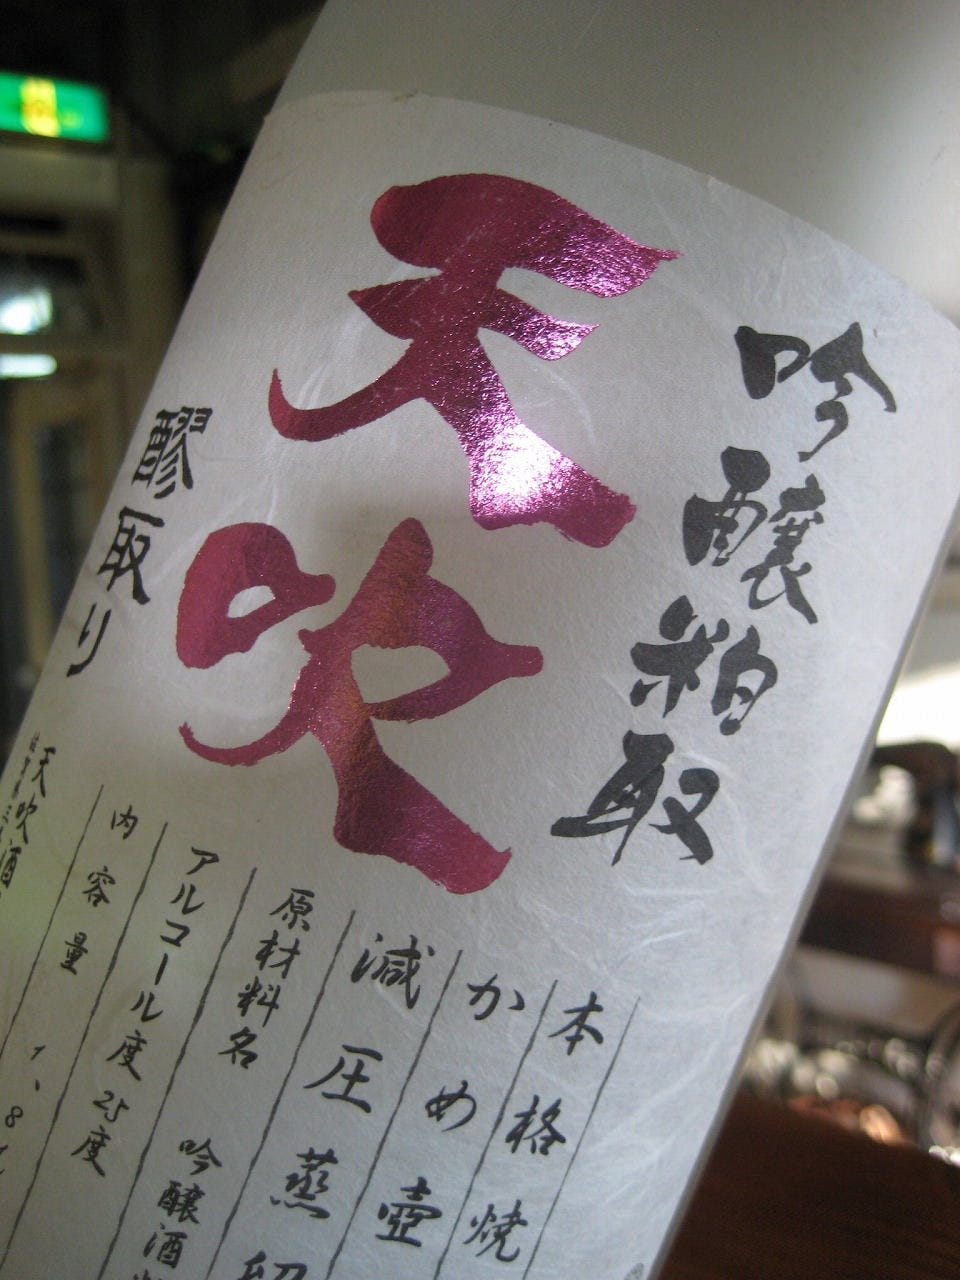 吟醸粕取
天吹
醪取り
本格焼
かめ壺
減圧蒸留
原材料名 吟醸酒粕
アルコール度25度
内容量 1.8L
天吹酒